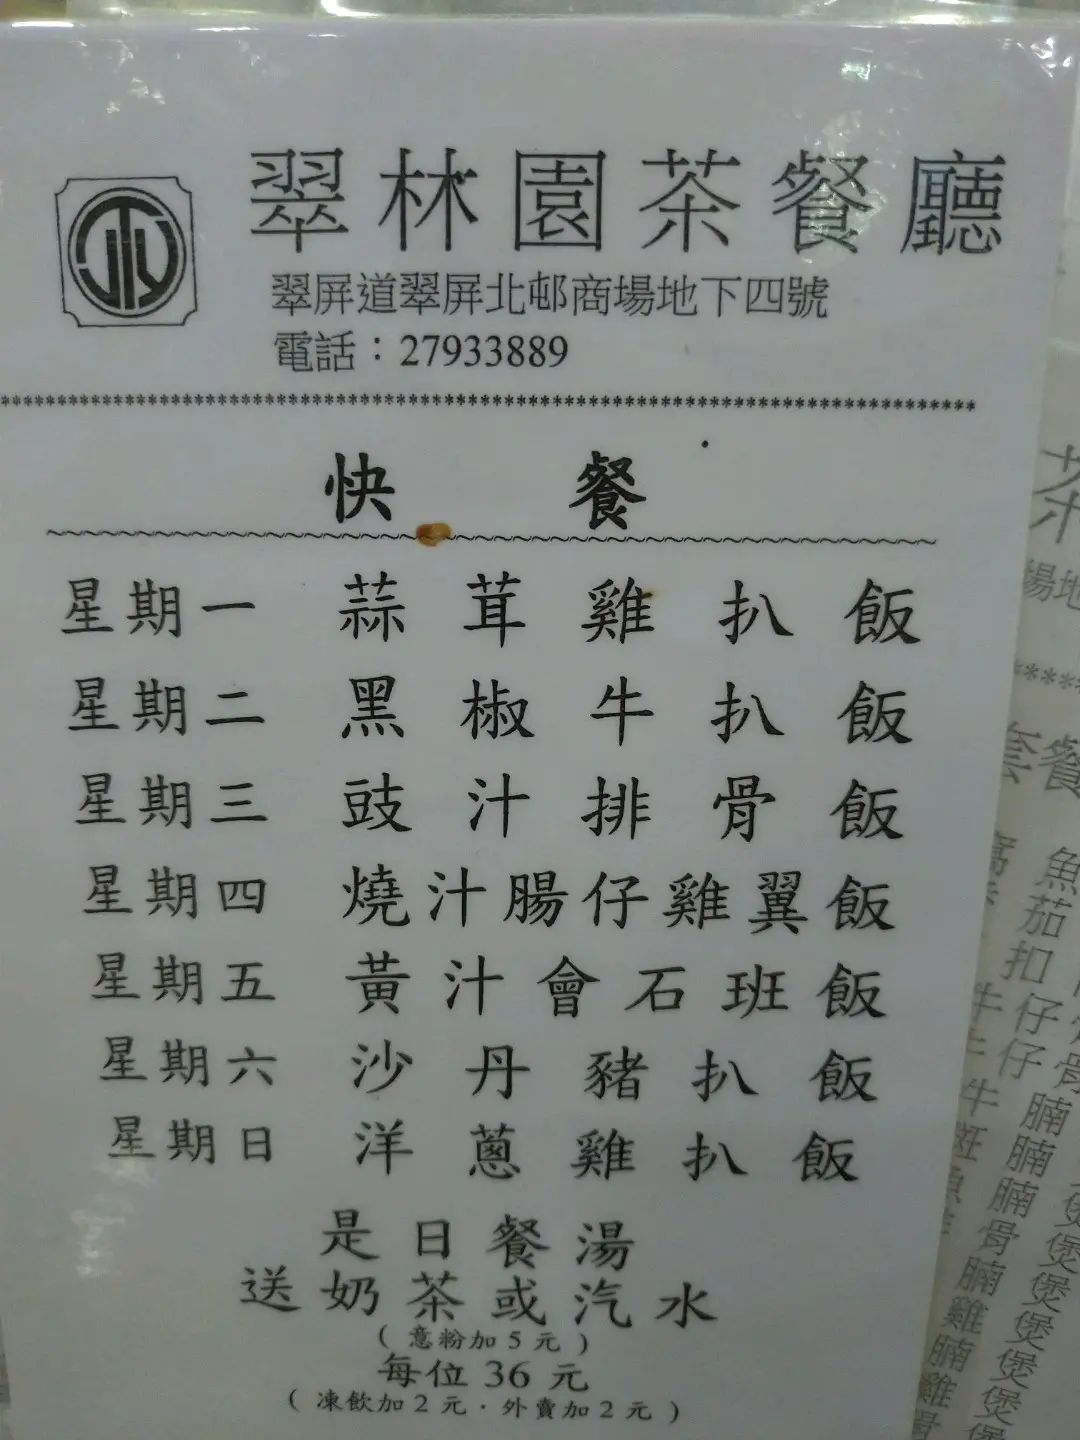 翠林園茶餐廳
翠屏道翠屏北邨商場地下四號
電話：27933889
快餐
星期一 蒜茸雞扒飯
星期二 黑椒牛扒飯
星期三 豉汁排骨飯
星期四 燒汁腸仔雞翼飯
星期五 黃汁會石班飯
星期六 沙丹豬扒飯
星期日 洋蔥雞扒飯
是日餐湯
送奶茶或汽水
（意粉加5元）
每位36元
（凍飲加2元．外賣加2元）